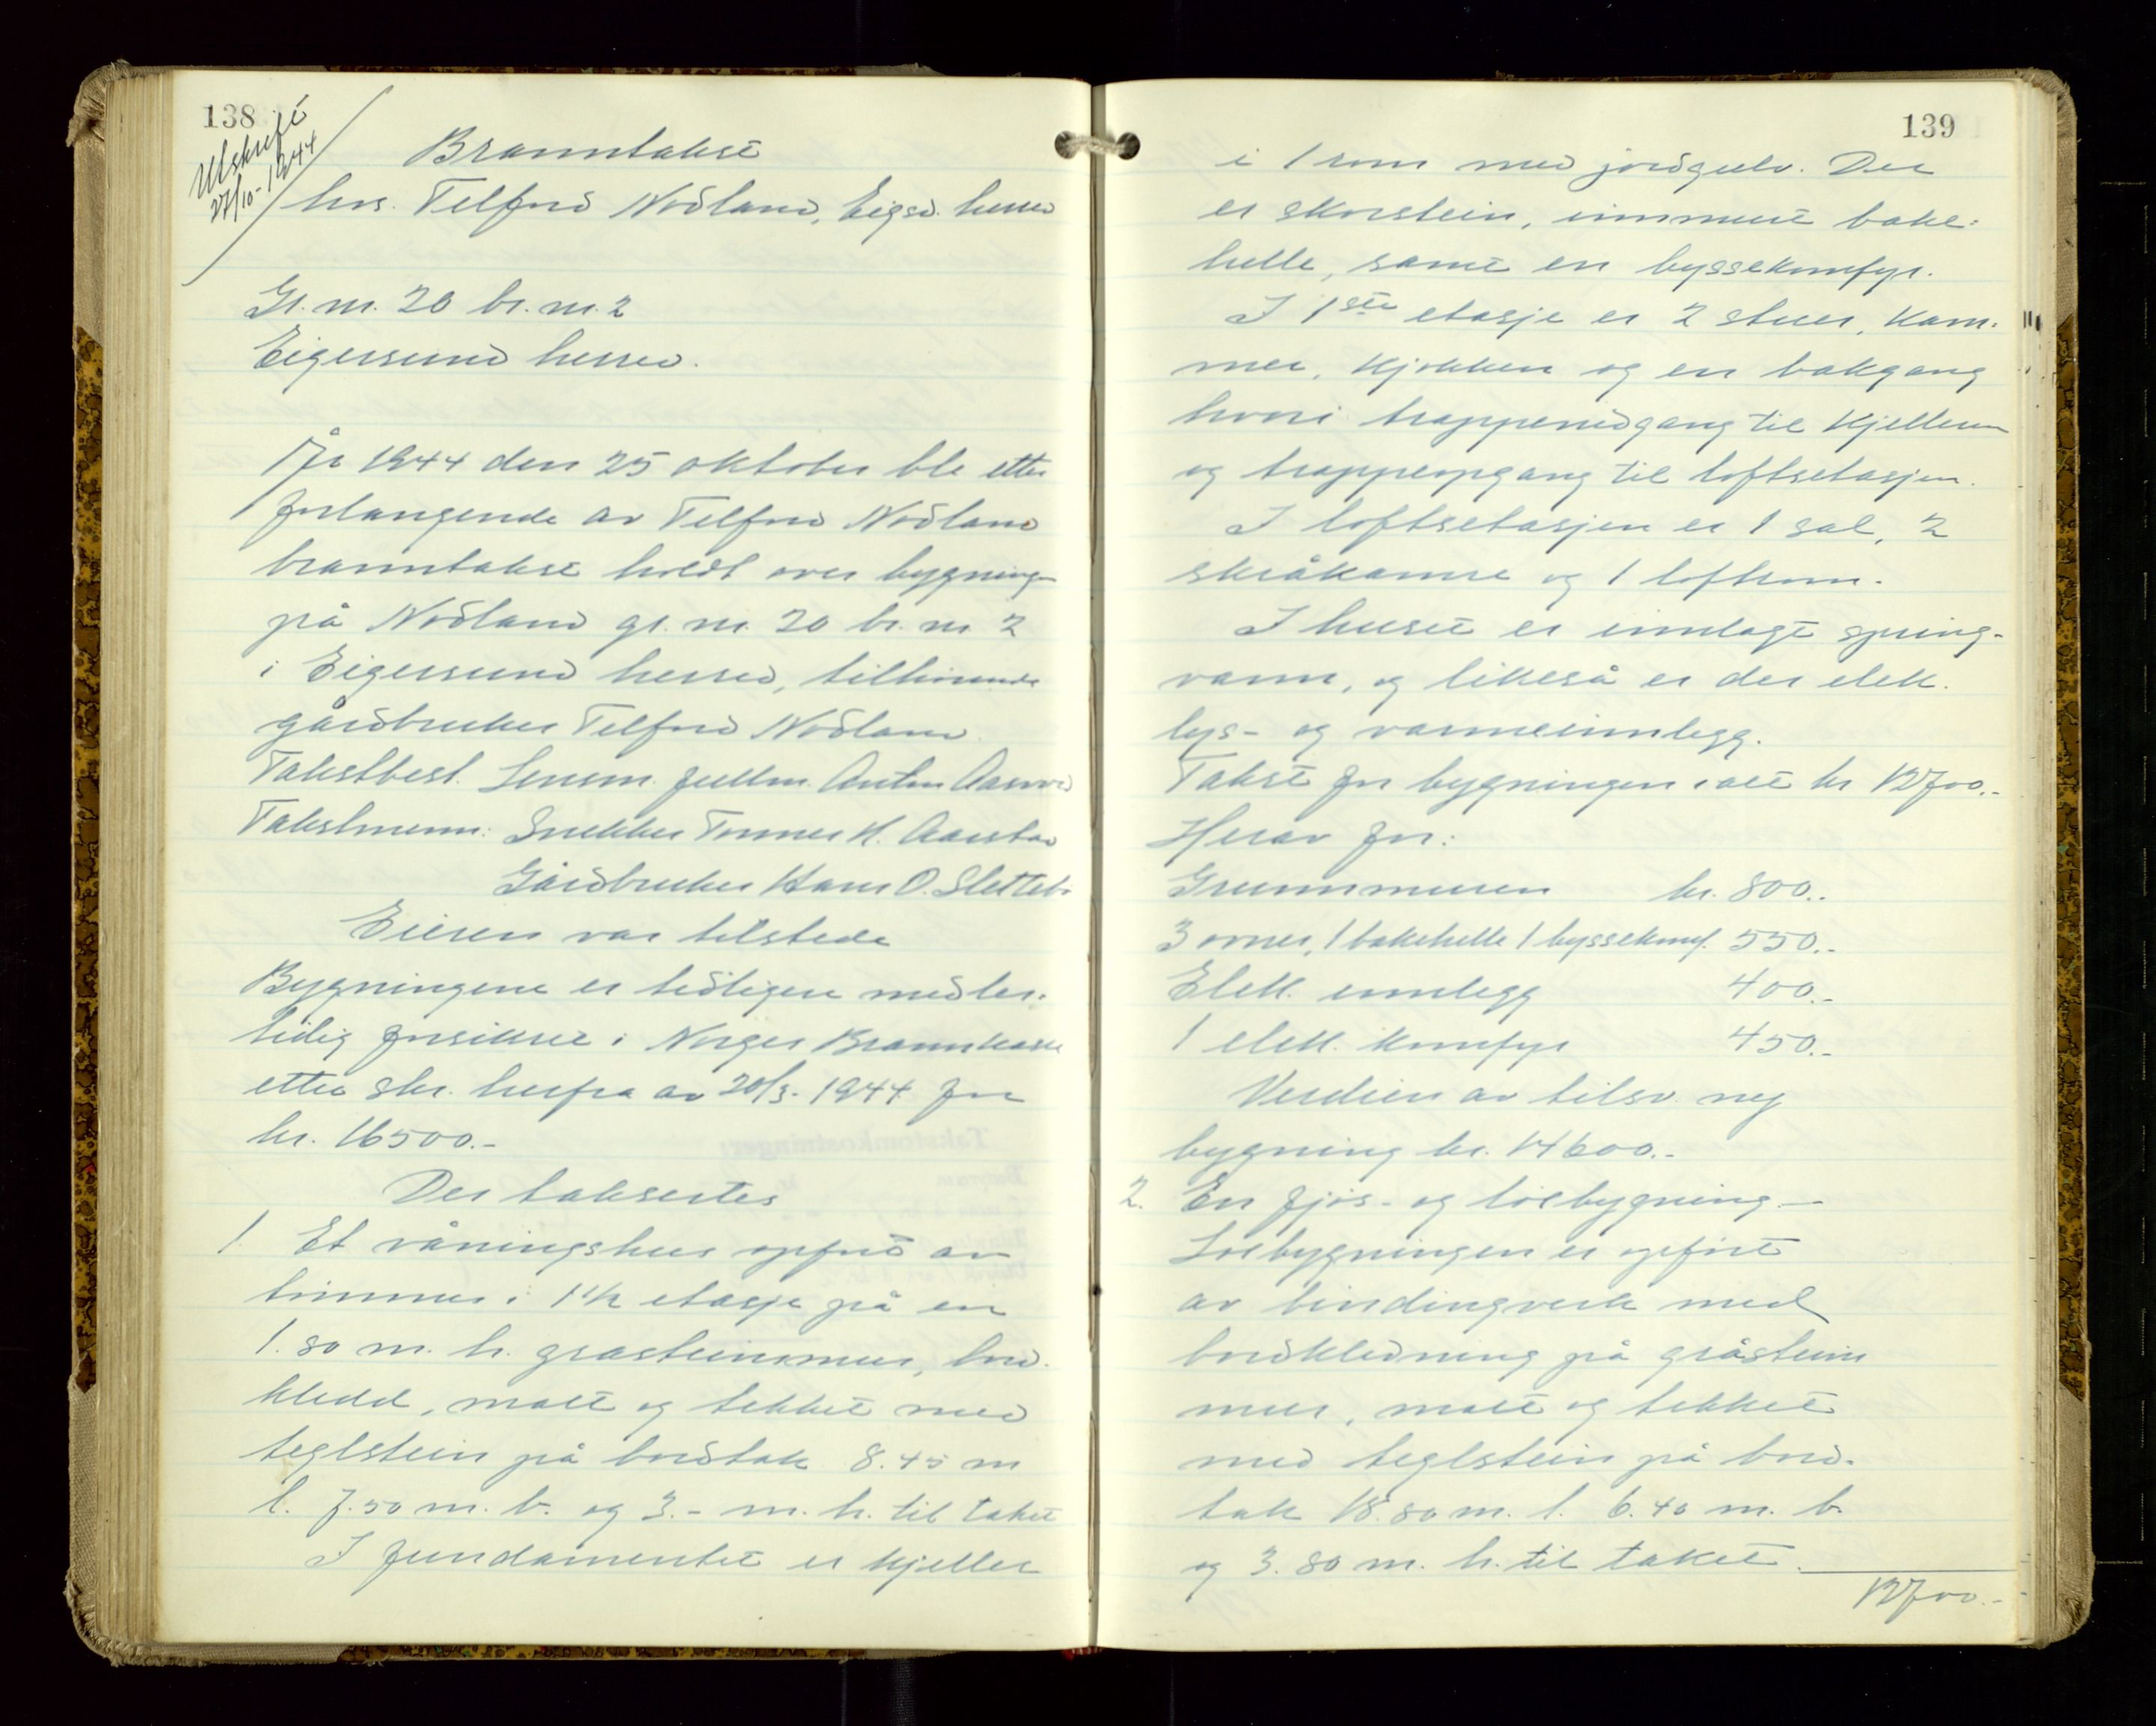 138
Utskrift
27/10-1944
Branntakst
hos Telford Nodland, Eigsd. herred
Gr. nr. 20 br. nr. 2
Eigersund herred.
År 1944 den 25 oktober ble etter
forlangende av Telford Nodland
branntakst holdt over bygninger
på Nodland gr. nr. 20 br. nr. 2
i Eigersund herred, tilhørende
gårdbruker Telford Nodland.
Takstbest. Lensm. fullm. Anton
Takstmenn: Snekker H. Aarstad
Gårdbruker Hans O. Slettebø
Eieren var tilstede
Bygningene er tidligere midler-
tidig forsikret i Norges Brannkasse
etter skr. herfra av 20/3-1944 for
kr. 16500.-
Der takseertes
1. Et våningshus opført av
tømmer i 1½ etasje på en
1.80 m. h. gråsteinsmur, bord-
kledd, malt og tekket med
teglstein på bordtak 8.45 m
l. 7.50 m. b. og 3.- m. h. til taket
I fundamentet er kjeller
139
i 1 rom med jordgulv. Der
er skorstein, innmurt bake-
helle, samt en byssekomfyr.
I 1ste etasje er 2 stuer, kam-
mer, kjøkken og en bakgang
hvori trappenedgang til kjelleren
og trappeopgang til loftsetasjen.
I loftsetasjen er 1 sal, 2
skråkamre og 1 loftrom.
I huset er innlagt spring-
vann, og likeså er der elek.
lys- og varmeinnlegg.
Takst for bygningen ialt kr 12700.-
Herav for:
Grunnmuren kr. 800.-
3 ovner, 1 bakehelle 1 byssekomf. 550.-
Elek. innlegg 400.-
1 elek. komfyr 450.-
Verdien av tilsv. ny
bygning kr. 14600.-
2. En fjøs- og løebygning -
Løebygningen er opført
av bindingverk med
bordkledning på gråsteins
mur, malt og tekket
med teglstein på bord-
tak 18.80 m. l. 6.40 m. b.
og 3.80 m. h. til taket.
12700.-